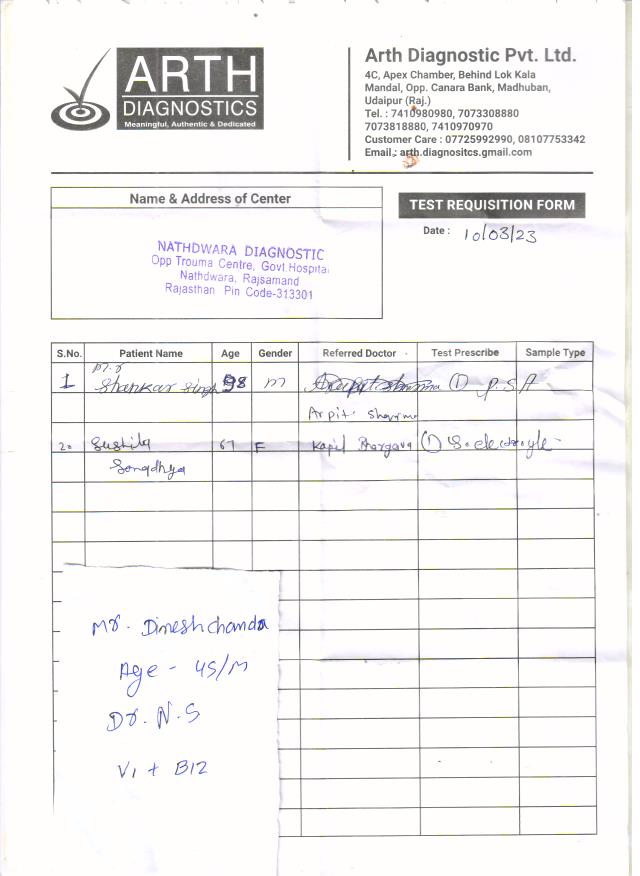 ARTH
DIAGNOSTICS
Meaningful, Authentic & Dedicated
Arth Diagnostic Pvt. Ltd.
4C, Apex Chamber, Behind Lok Kala
Mandal, Opp. Canara Bank, Madhuban,
Udaipur (Raj.)
Tel. : 7410980980, 7073308880
7073818880, 7410970970
Customer Care : 07725992990, 08107753342
Email.: arth.diagnositcs.gmail.com
Name & Address of Center
NATHDWARA DIAGNOSTIC
Opp Trouma Centre, Govt.Hospital
Nathdwara, Rajsamand
Rajasthan Pin Code-313301
TEST REQUISITION FORM
Date : 10/03/23
S.No. Patient Name Age Gender Referred Doctor Test Prescribe Sample Type
Mr
1 Shankar Singh 98 M (1) P.S.A
Arpit Sharma
2 Sushila 67 F Kapil Bhargava (1) S. electroyle
Songdhya
Mr. Dinesh chanda
Age - 45/M
Dr. N.S
Vi + B12